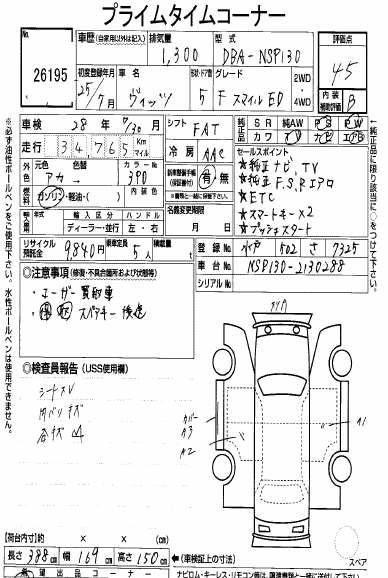 プライムタイムコーナー
No. 26195
車歴 (自家用以外は記入) 排気量 1,300 型式 DBA-NSP130 評価点 4.5
初度登録年月 25/7月 車名 ヴィッツ 形状・ドア数 5 グレード F スマイルED 2WD ・ 4WD 内装 B
車検 28年6/30月 シフト FAT 純正品 SR 純AW PS PW カワ ナビ TV エアB
走行 34,765 Km マイル 冷房 AAC セールスポイント
★純正ナビ、TV
元色 アカ 色替 カラー No. 3P0 新車整備手帳(保証書付) 有・無 ★純正F,S,Rエアロ
★ETC
燃料 ガソリン・軽油・( ) 内装色 名義変更期限 月 日 ★スマートキー×2
輸入車 年式 輸入区分 ディーラー・並行 ハンドル 左・右 ★プッシュスタート
リサイクル預託金 9,840円 乗車定員 5人 積載量 t 登録No. 水戸 502 さ 7325
車台No. NSP130-2130288
シリアルNo.
◎注意事項 (修復・不具合箇所および状態等)
・ユーザー買取車
・スペアキー後送
◎検査員報告 (USS使用欄)
シートスレ
内ハリキズ
各キズ
カバー
A3
A2
A1
【荷台内寸】 × × (cm)
長さ 388 cm 幅 169 cm 高さ 150 cm (車検証上の寸法) スペア
希望出品コーナー
ナビロム・キーレス・リモコン等は、譲渡書類と一緒に送付して下さい。
※必ず油性ボールペンをご使用下さい。水性ボールペンは使用できません。
※純正品に限り該当に○をつけて下さい。